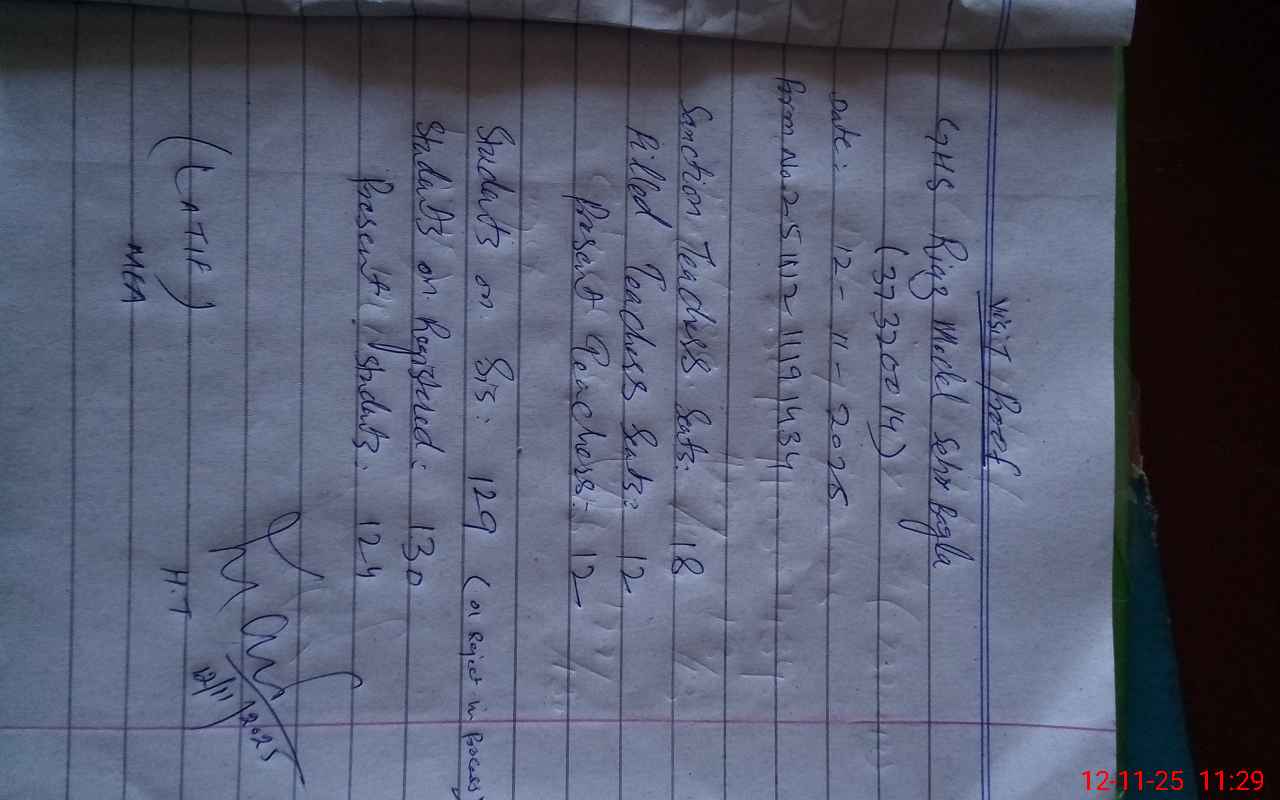 Visit Proof
GHS Riaz Model School Bagla
(37320014)
Date: 12-11-2025
Form No. 25111211191434
Sanction Teachers Seats: 18
Filled Teachers Seats: 12
Present Teachers: 12
Students on Sis: 129 (01 Reject in process)
Students on Registered: 130
Present students: 124
(LATIF)
MEA
H.T
12/11/2025
12-11-25 11:29